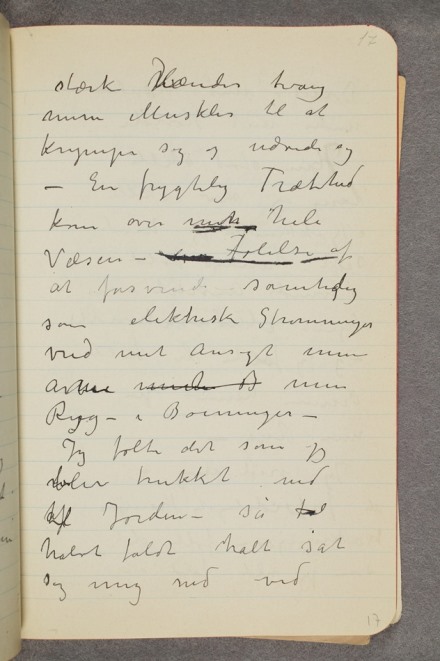 17
stærk Hænder tvang
mine Muskler til at
krympe sig og udvide sig
– En frygtelig Træthed
kom over mit hele
Væsen – Følelse af
at forsvinde samtidig
som elektrisk Strømninger
vred mit Ansigt mine
arme min
Ryg – i Bounninger –
Jeg følte det som jeg
blev trukket ned
af Jorden – så
halvt faldt halt sat
jeg mig ned ved
17